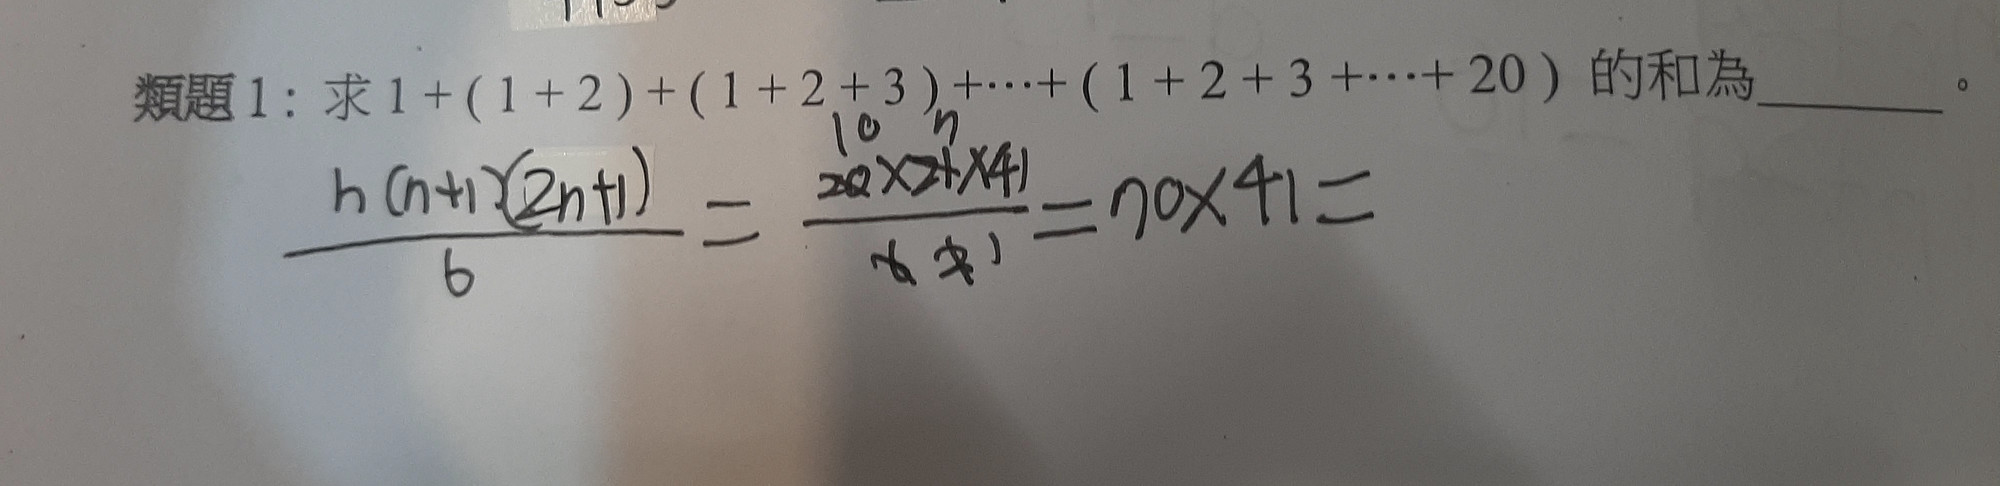 類題1：求1+(1+2)+(1+2+3)+⋯+(1+2+3+⋯+20)的和為______。
10 7
n(n+1)(2n+1)/6 = 20×21×41/6 3 1 = 70×41=